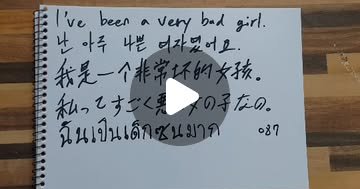 I've been a very bad girl.
난 아주 나쁜 여자였어요.
我是一个非常坏的女孩。
私ってすごく悪い女の子なの。
ฉันเป็นเด็กซนมาก 087